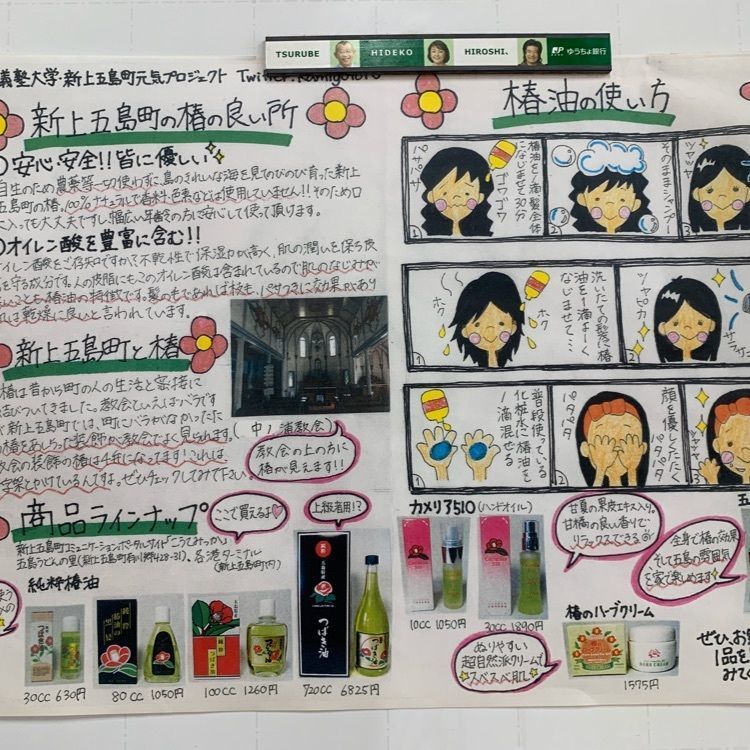 TSURUBE HIDEKO HIROSHI、 ゆうちょ銀行
義塾大学・新上五島町元気プロジェクト Twitter:Kamigoto10
新上五島町の椿の良い所
安心・安全!!皆に優しい
自生のため農薬等一切使わずに島のきれいな海を見てのびのび育った新上
五島町の椿。100%ナチュラルで香料、色素などは使用していません!!そのため口
に入っても大丈夫ですし幅広い年齢の方に安心して使って頂けます。
オレイン酸を豊富に含む!!
オレイン酸をご存知ですか?不乾性で保湿力が高く、肌の潤いを保ち皮
を守る成分です。人の皮脂にもこのオレイン酸は含まれているので肌のなじみやす
いことも椿油の特徴です。髪の毛であれば枝毛、パサつきに効果があり
肌は乾燥に良いと言われています。
新上五島町と椿
椿は昔から町の人の生活と密接に
結びついてきました。教会といえばバラです
が新上五島町では、町にバラがなかったため
椿をあしらった装飾が教会でよく見られます。
教会の装飾の椿は4枚になってます!これは
十字架とかけているんですよ。ぜひチェックしてみて下さい。
(中ノ浦教会)
教会の上の方に
椿が見えます!!
商品ラインナップ
ここで買えるよ
上級者用!?
新上五島町コミュニケーションポータルサイト「こうてみっかい」
五島うどんの里(新上五島町有川郷428-31)、各港ターミナル
(新上五島町内)
純粋椿油
30cc 630円
80cc 1050円
100cc 1260円
720cc 6825円
純粋
つばき油
椿油の使い方
パサパサ
ゴワゴワ
椿油を1滴髪全体
になじませ30分
1
2
そのままシャンプー
ツヤツヤ
3
ホク
ホク
1
洗いたての髪に椿
油を1滴よーく
なじませて…
ツヤピカ
サラサラ
2
1
普段使っている
化粧水に椿油を
1滴混ぜる
2
パタパタ
顔を優しくたたく
パタパタ
3
カメリア510(ハンドオイル)
10cc 1050円
30cc 1890円
甘夏の果皮エキス入り。
甘橘の良い香りで
リラックスできる
全身で椿の効果
そして五島の雰囲気
を家で楽しめます
椿のハーブクリーム
ぬりやすい
超自然派クリームで
スベスベ肌
1575円
ぜひ、お
1品を
みて